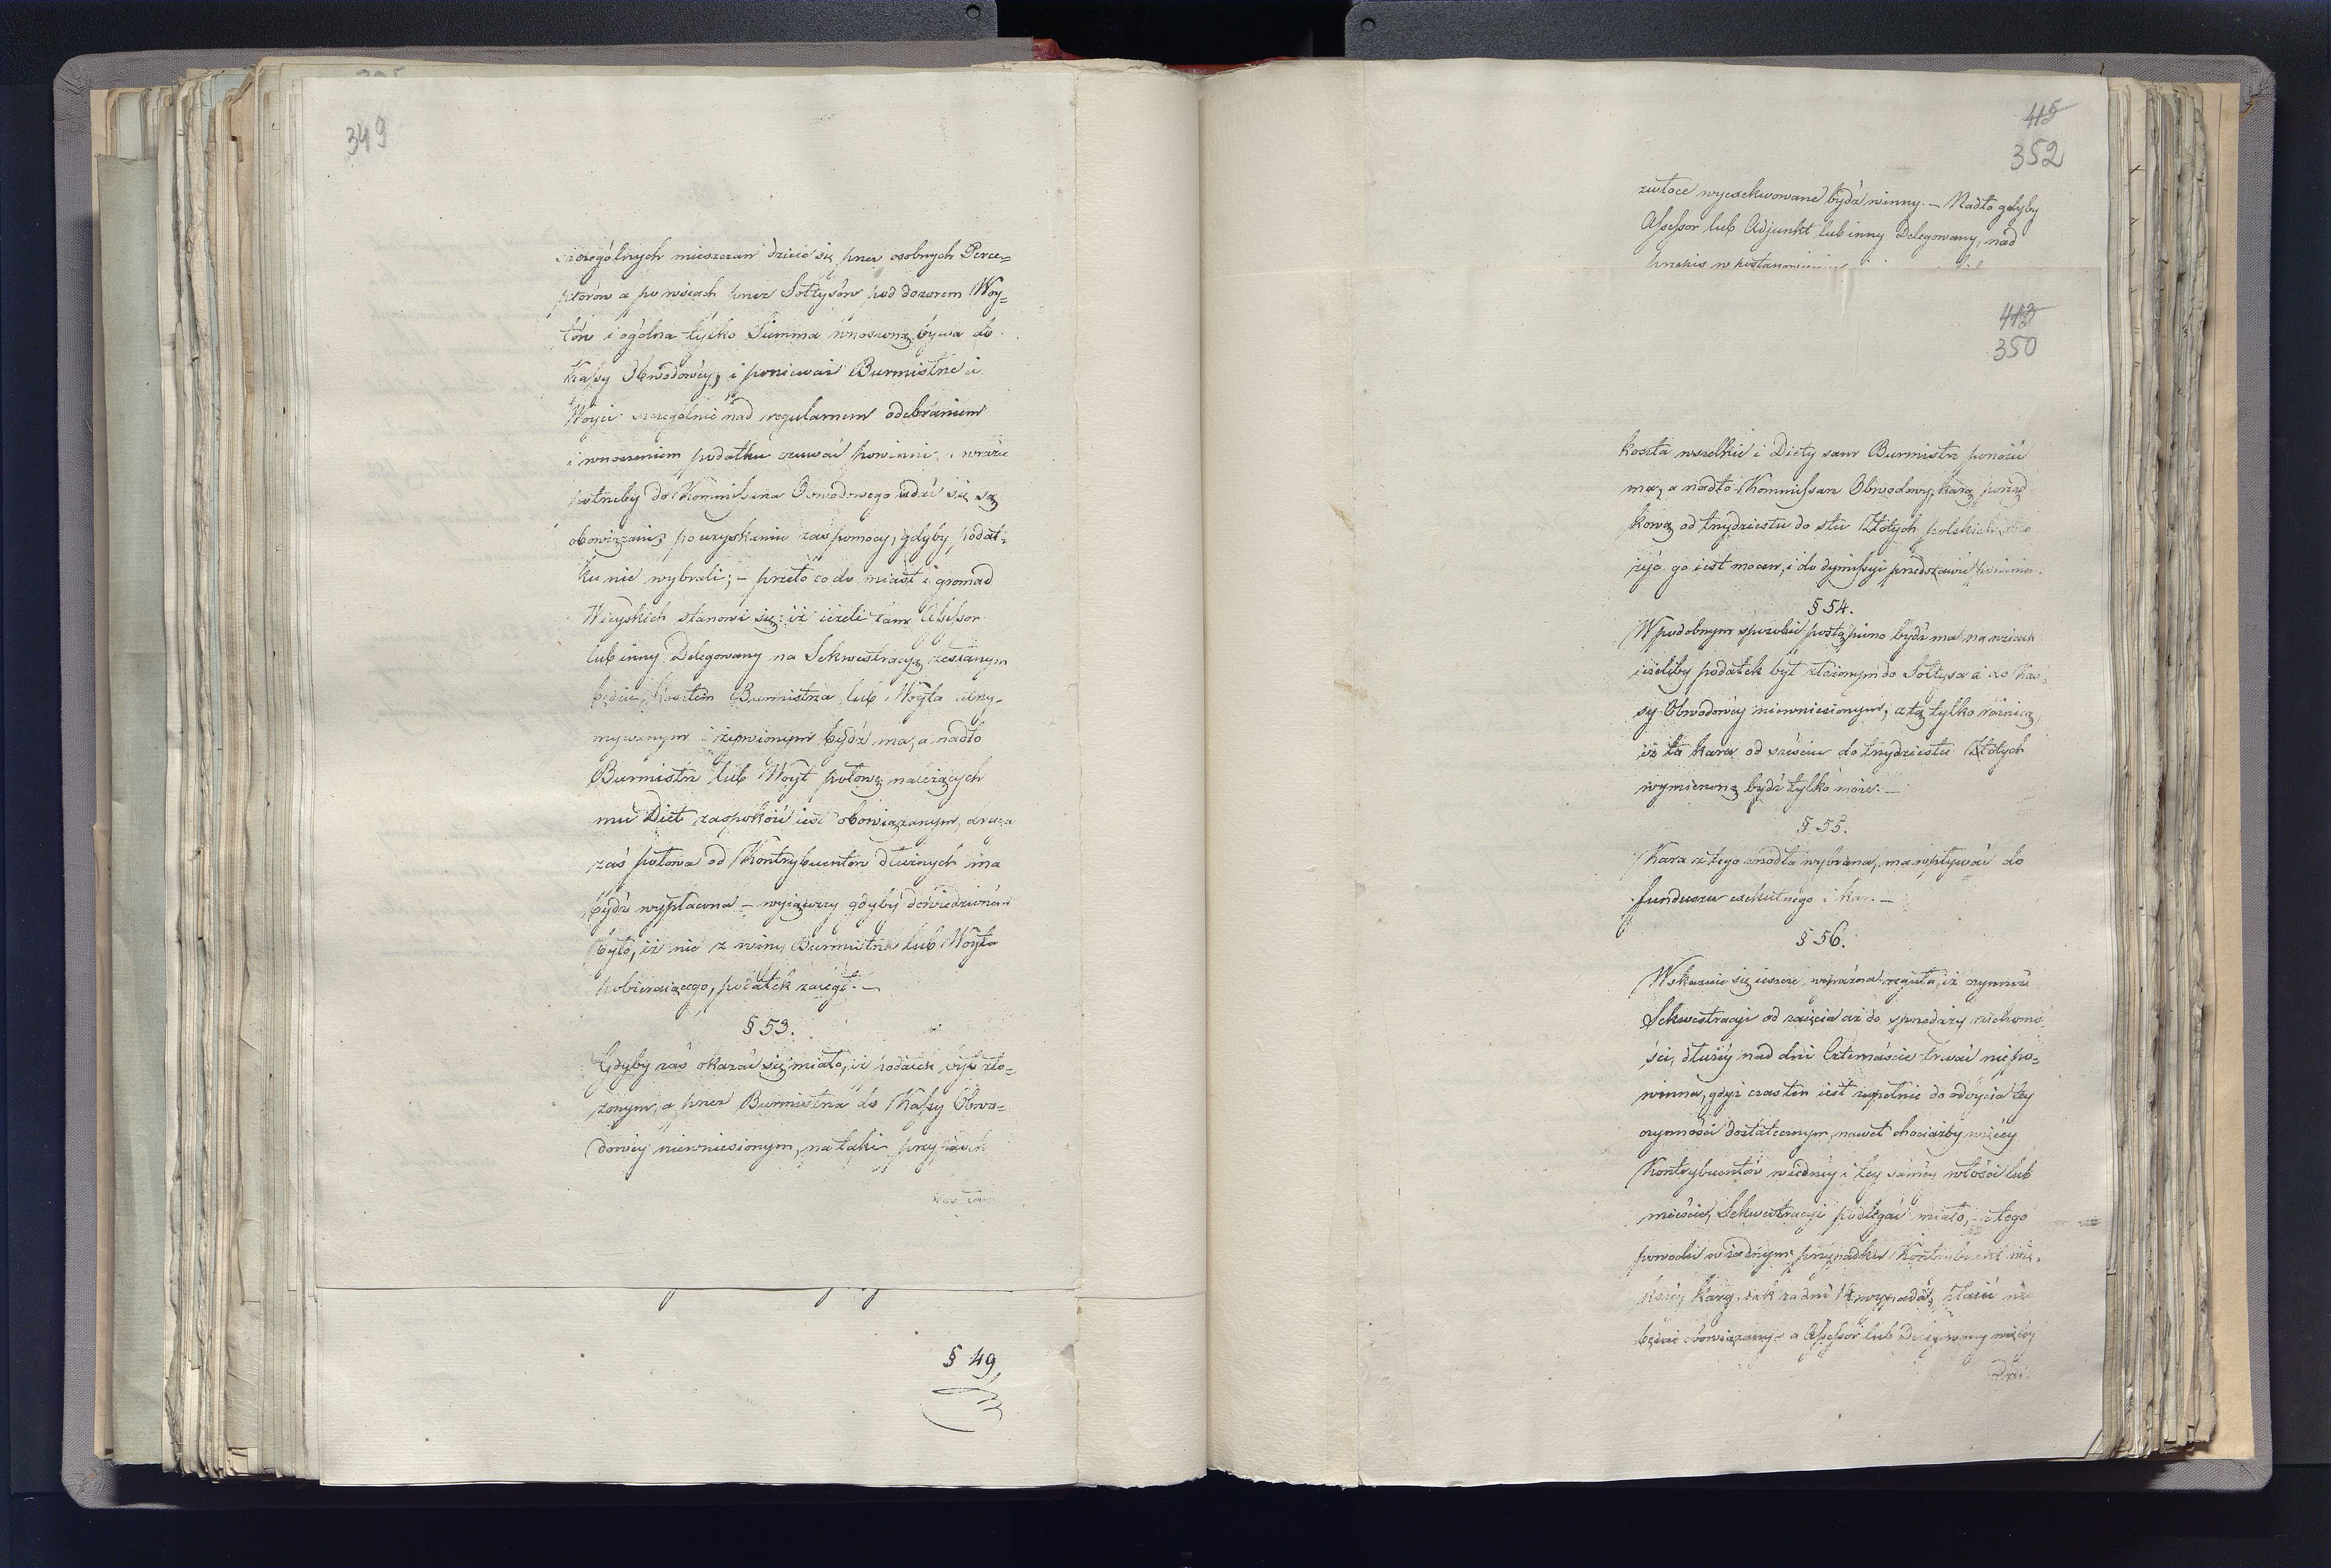 349
szczególnych mieszczan dzieie się przez osobnych Perce=
ptorów a po wsiach przez Sołtysów pod dozorem Woy=
tów i ogólna tylko Summa wnoszoną bywa do
Kassy Obwodowéy, i ponieważ Burmistrze i
Woyci szczególnie nad regularnem odebraniem
i wnoszeniem podatku czuwać powinni, i w razie
potrzeby do Kommissarza Obwodowego udać się są
obowiązani, po uzyskaniu zaś pomocy, gdyby podat=
ku nie wybrali; – przeto co do miast i gromad
Wieyskich stanowi się: iż ieżeli tam Assessor
lub inny Delegowany na Sekwestracyą zesłanym
będzie, kosztem Burmistrza lub Woyta utrzy=
mywanym i żywionym bydź ma, a nadto
Burmistrz lub Woyt połowę należących
mu Diet zaspokoić iest obowiązanym, druga
zaś połowa od Kontrybuentów dłużnych ma
bydź wypłacona – wyiąwszy gdyby dowiedzionem
było, iż nie z winy Burmistrza lub Woyta
pobieraiącego, podatek zaległ. –
§ 53.
Gdyby zaś okazać się miało, iż podatek był zło=
żonym, a przez Burmistrza do Kassy Obwo=
dowéy niewniesionym, na taki przypadek
koszta
§ 49.
415
352
zwłoce wyexekwowane bydź winny. – Nadto gdyby
Assessor lub Adjunkt lub inny Delegowany, nad
przepis w postanowieniu
413
350
koszta wszelkie i Diety sam Burmistrz ponosić
ma, a nadto Kommissarz Obwodowy, karą porząd
kową od trzydziestu do stu Złotych polskich
go iest mocen, i do dymissyi przedstawić powinien.
§ 54.
W podobnym sposobie postąpiono bydź ma na wsiach
ieżeliby podatek był złożonym do Sołtysa a do Kas=
sy Obwodowéy niewniesionym, z tą tylko różnicą,
iż ta kara od sześciu do trzydziestu Złotych
wymierzoną bydź tylko może. –
§ 55.
Kara z tego źródła wybrana, ma wpływać do
funduszu exekutnego i kar. –
§ 56.
Wskazuie się ieszcze wyraźna reguła, iż czynność
Sekwestracyi od zaięcia aż do sprzedaży ruchomo
ści, dłużéy nad dni Czternaście trwać niepo=
winna, gdyż czas ten iest zupełnie do odbycia téy
czynności dostatecznym, nawet chociażby więcéy
Kontrybuentów w iednéy i téy saméy włości lub
mieście, Sekwestracyi podlegać miało, z tego
powodu w żadnym przypadku Kontrybuent wię=
kszéy karę, iak za dni 14 wypada, płacić nie
będzie obowiązany, a Assessor lub Delegowany więcéy
Diet